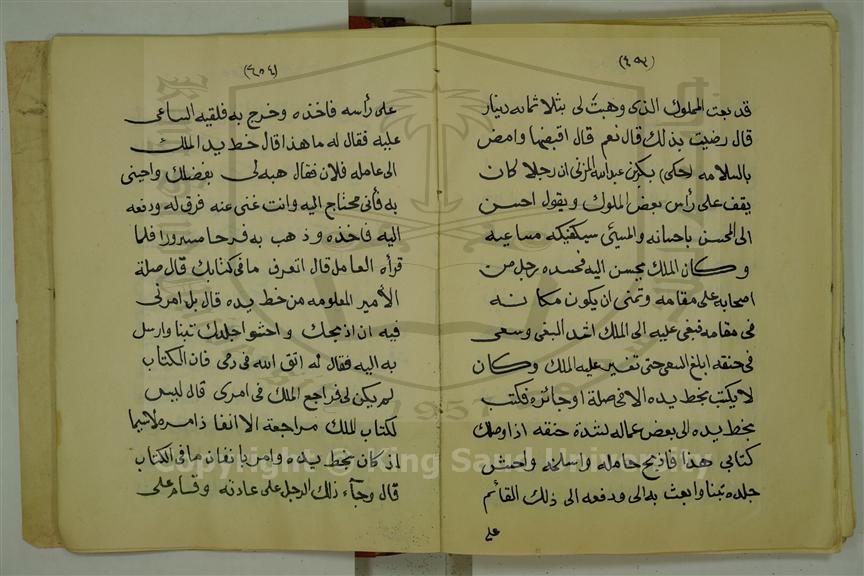 (٤٥٣)
قد بعت المملوك الذى وهبت لى بثلاثمائه دينار
قال رضيت بذلك قال نعم قال اقبضها وامض
بالسلامه (حكى) بكر بن عبدالله المزنى ان رجلا كان
يقف على رأس بعض الملوك ويقول احسن
الى المحسن باحسانه والمسيئ سيكفيكه مساعيه
وكان الملك يحسن اليه فحسده رجل من
اصحابه على مقامه وتمنى ان يكون مكانه
فى مقامه فبغى عليه الى الملك اشد البغى وسعى
فى حنقه ابلغ السعى حتى تغير عليه الملك وكان
لا يكتب بخط يده الا فى صلة او جائزه فكتب
بخط يده الى بعض عماله لشدة حنقه اذا وصلك
كتابى هذا فاذبح حامله واسلخه واحش
جلده تبنا وابعث به الى ودفعه الى ذلك القائم
على
(٤٥٤)
على رأسه فاخذه وخرج به فلقيه الساعى
عليه فقال له ما هذا قال خط يد الملك
الى عامله فلان فقال هبه لى بفضلك واحبنى
به فأنى محتاج اليه وانت غنى عنه فرق له ودفعه
اليه فاخذه وذهب به فرحا مسرورا فلما
قرأه العامل قال اتعرف ما فى كتابك قال صلة
الأمير المعلومه من خط يده قال بل امرنى
فيه ان اذبحك واحشو اجلدك تبنا وارسل
به اليه فقال له اتق الله فى دمى فان الكتاب
لم يكن لى فراجع الملك فى امرى قال ليس
لكتاب الملك مراجعة الا انفاذ امره لاسيما
اذ كان بخط يده وامر بانفاذ ما فى الكتاب
قال وجآء ذلك الرجل على عادته وقام على
Copyright © King Saud University
1957